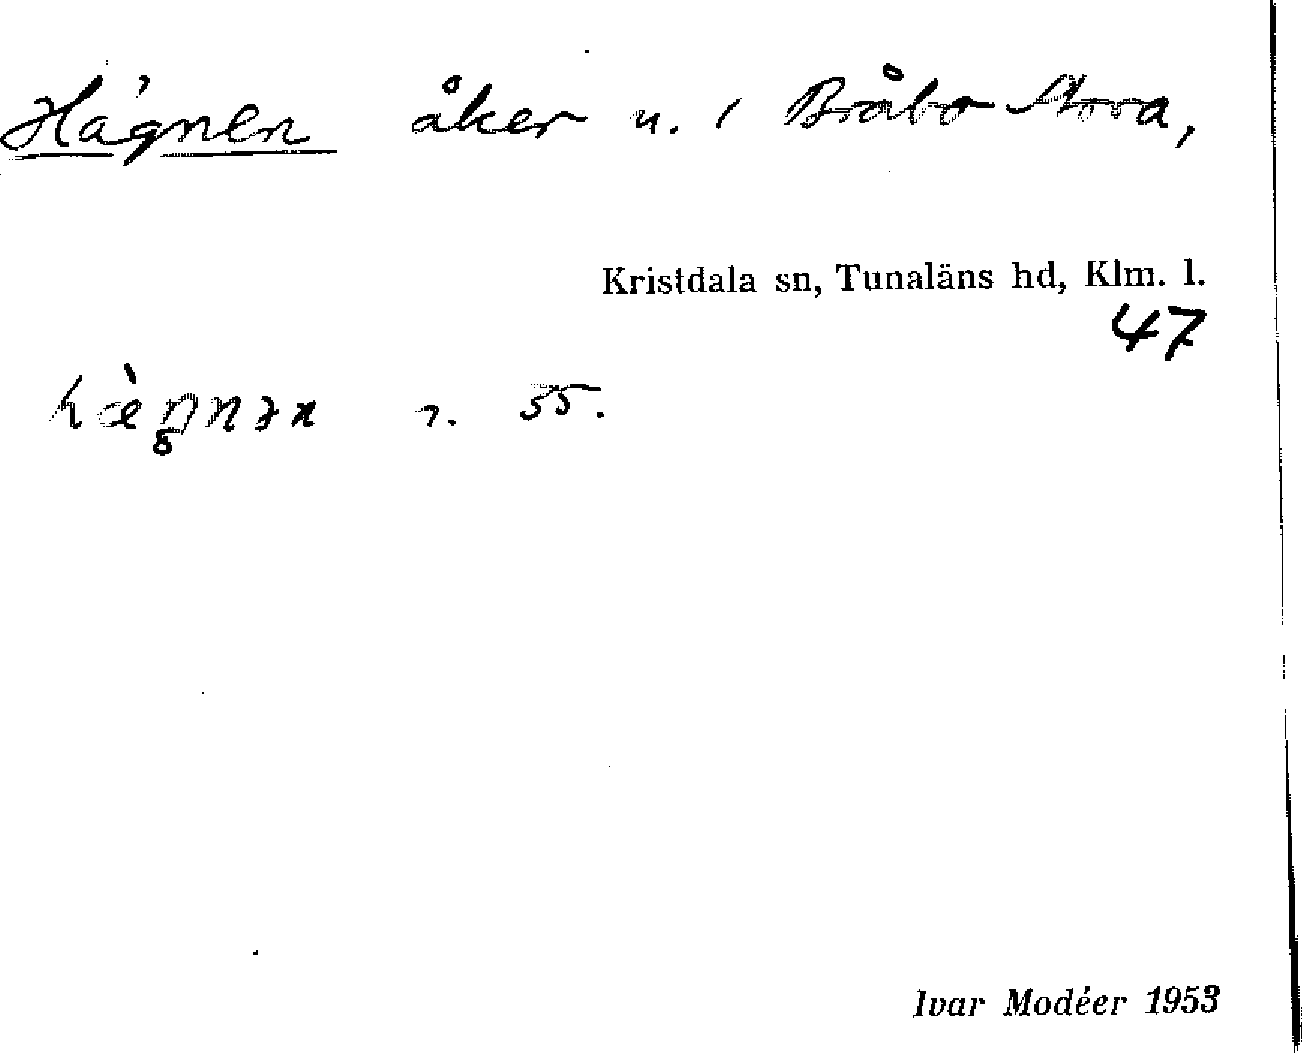 Hägnen åker n. 1 Bråbo Stora,
Kristdala sn, Tunaläns hd, Klm. l.
47
55.
Ivar Modéer 1953